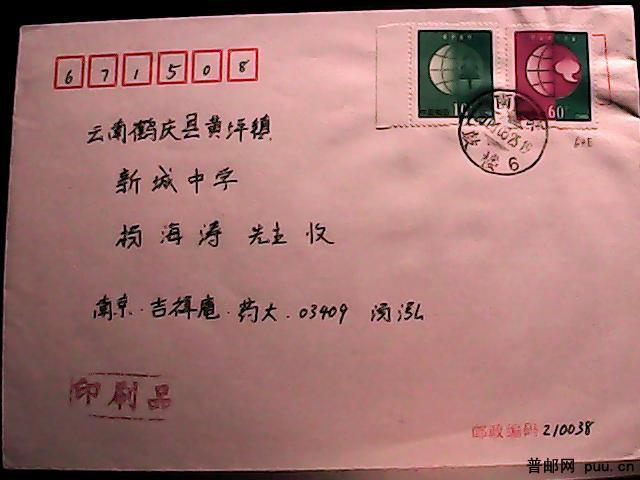 671508
10分
60分
云南鹤庆县黄坪镇
新城中学
杨海涛 先生 收
南京·吉祥庵·药大·03409 汤泓
印刷品
邮政编码 210038
普邮网 puu.cn